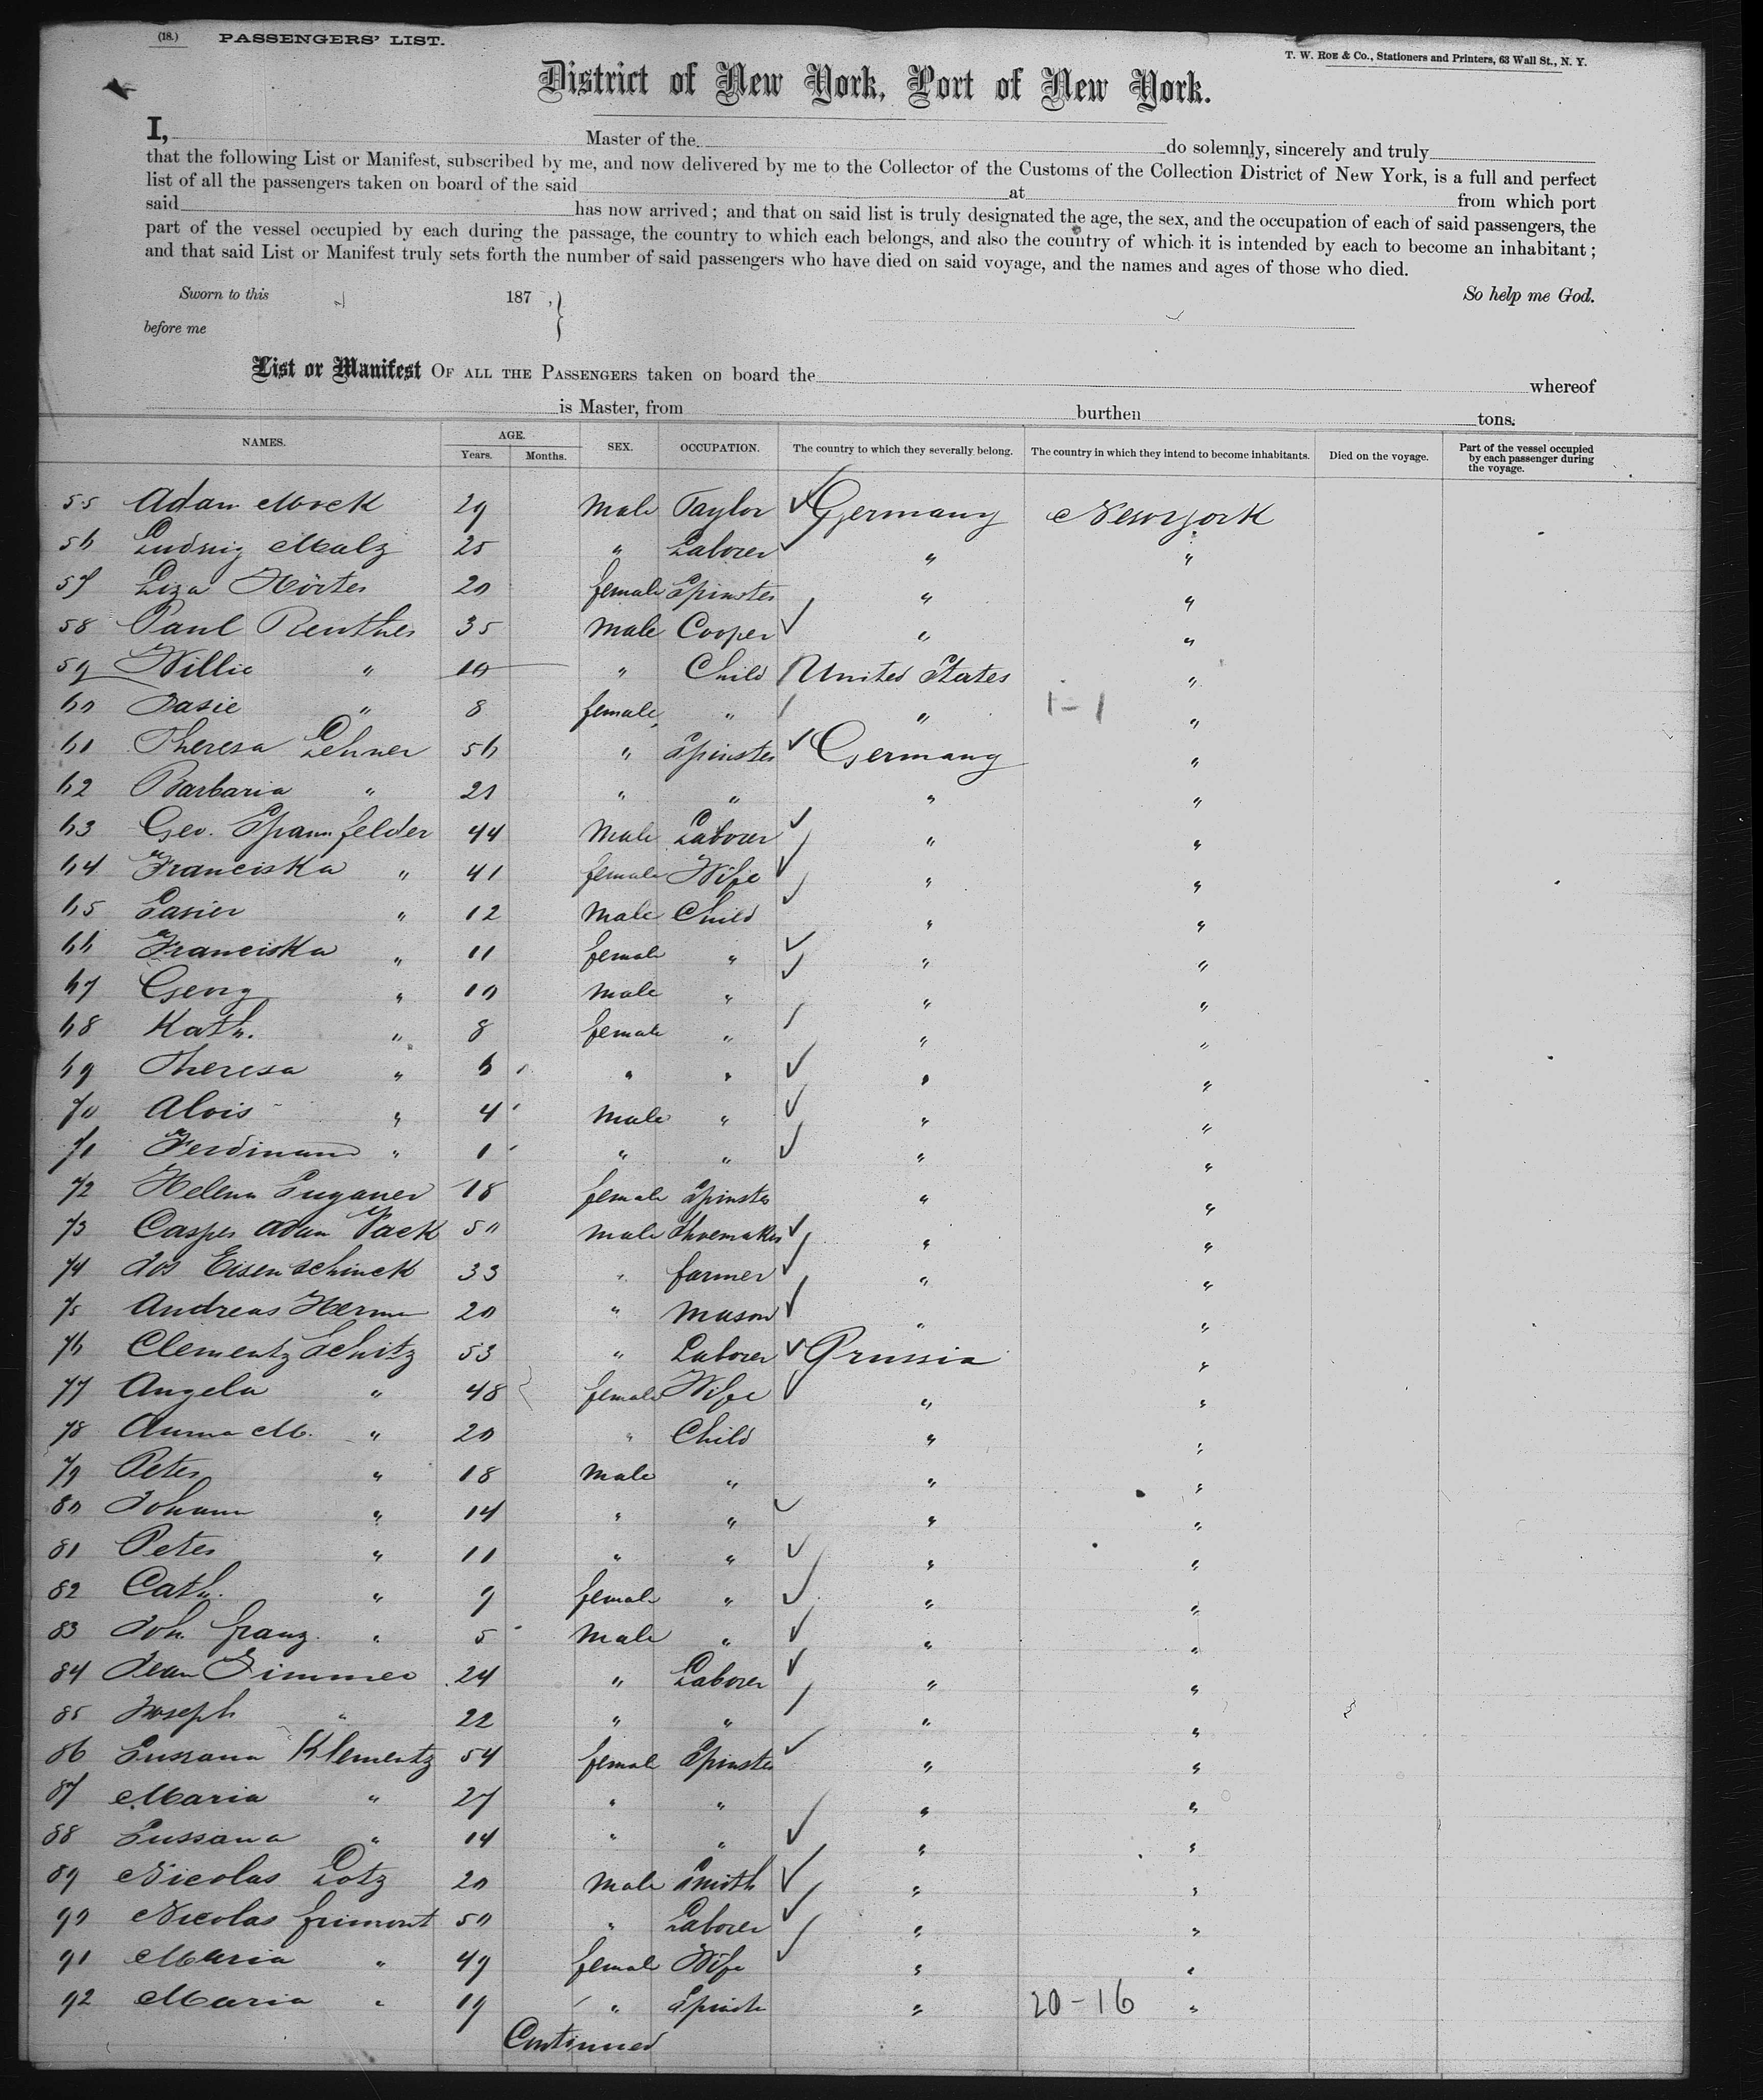 (18.) PASSENGERS' LIST.
T. W. ROE & Co., Stationers and Printers, 63 Wall St., N. Y.
District of New York, Port of New York.
I, Master of the do solemnly, sincerely and truly
that the following List or Manifest, subscribed by me, and now delivered by me to the Collector of the Customs of the Collection District of New York, is a full and perfect
list of all the passengers taken on board of the said at from which port
said has now arrived; and that on said list is truly designated the age, the sex, and the occupation of each of said passengers, the
part of the vessel occupied by each during the passage, the country to which each belongs, and also the country of which it is intended by each to become an inhabitant;
and that said List or Manifest truly sets forth the number of said passengers who have died on said voyage, and the names and ages of those who died.
Sworn to this 187 , So help me God.
before me
List or Manifest OF ALL THE PASSENGERS taken on board the whereof
is Master, from burthen tons.
NAMES. AGE. Years. Months. SEX. OCCUPATION. The country to which they severally belong. The country in which they intend to become inhabitants. Died on the voyage. Part of the vessel occupied by each passenger during the voyage.
55 Adam Mock 29 Male Taylor Germany New york
56 Ludwig Malz 25 " Laborer " "
57 Liza Hörter 20 female Spinster " "
58 Paul Reuther 35 Male Cooper " "
59 Willie " 10 " Child United States "
60 Susie " 8 female " " 1-1 "
61 Theresa Lehner 56 " Spinster Germany "
62 Barbaria " 21 " " " "
63 Geo. Spannfelder 44 Male Laborer " "
64 Franciska " 41 female Wife " "
65 " 12 Male Child " "
66 Franciska " 11 female " " "
67 Georg " 10 Male " " "
68 Kath. " 8 female " " "
69 Theresa " 6 " " " "
70 Alois " 4 Male " " "
71 Ferdinand " 1 " " " "
72 Helena 18 female Spinster " "
73 Casper Adam Pack 50 Male Shoemaker " "
74 Jos Eisenschinck 33 " farmer " "
75 Andreas Herm 20 " Mason " "
76 Clementz Schitz 53 " Laborer Prussia "
77 Angela " 48 female Wife " "
78 Anna M. " 20 " Child " "
79 Peter " 18 Male " " "
80 Johann " 14 " " " "
81 Peter " 11 " " " "
82 Cath. " 9 female " " "
83 Joh. franz. " 5 Male " " "
84 Jean Simmer 24 " Laborer " "
85 Joseph " 22 " " " "
86 Sussana Klementz 54 female Spinster " "
87 Maria " 27 " " " "
88 Sussana " 14 " " " "
89 Nicolas Lotz 20 Male Smith " "
90 Nicolas frimont 50 " Laborer " "
91 Maria " 49 female Wife " "
92 Maria " 19 " Spinste " 20-16 "
Continued